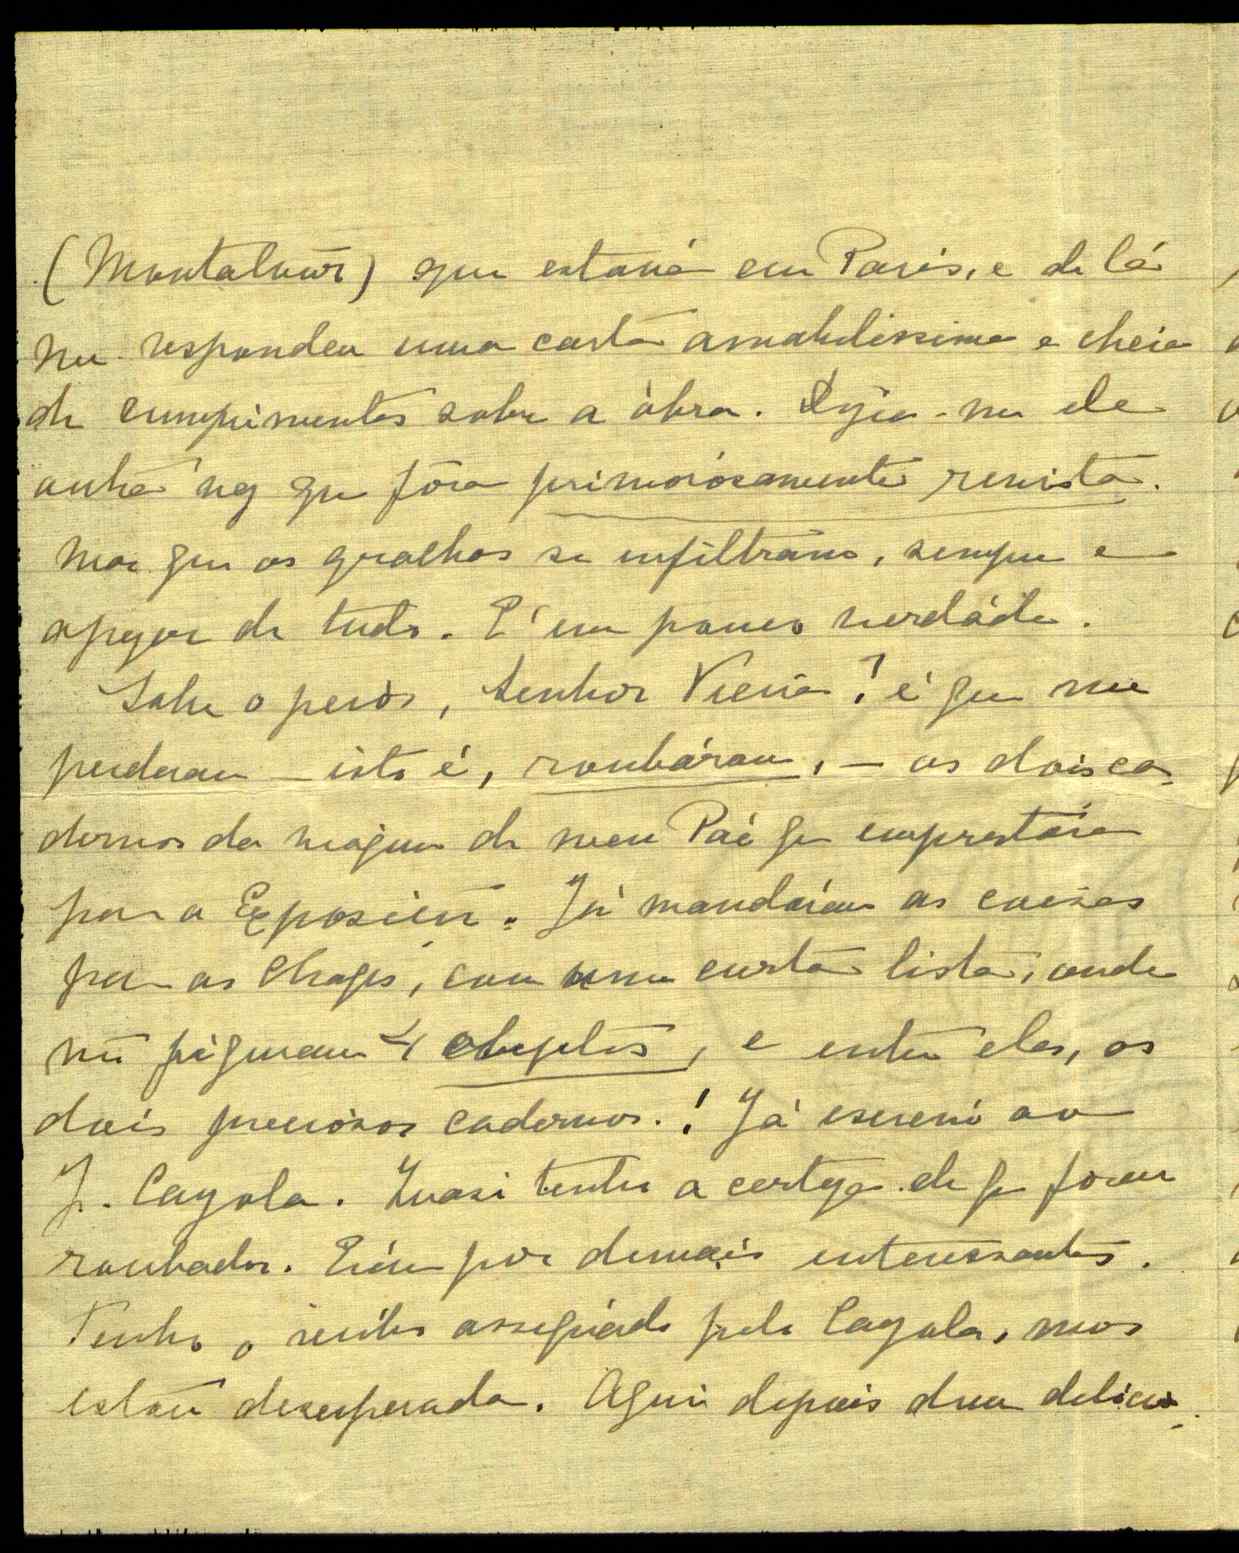 (Montalvôr) que estava em Paris, e de lá
me respondeu uma carta amabilissima e cheia
de cumprimentos sobre a óbra. Dizia-me ele
que fôra primorósamente revista.
Mas que as gralhas se infiltram, sempre e
apezar de tudo. É um pouco verdáde.
Sabe o peiór, Senhor Vieira? é que me
perderam – isto é, roubáram, – os dois ca-
dernos da viagem de meu Pai que emprestára
para a Exposição. Já mandáram as caixas
para as Chagas, com uma curta lista, onde
não figuram 4 objectos, e entre eles, os
dois preciosos cadernos.! Já escrevi ao
J. Cayola. Quasi tenho a certeza de que foram
roubados. Eram por demais interessantes.
Tenho o recibo assignado pelo Cayola, mas
estou desesperada. Aqui depois dum delicio-